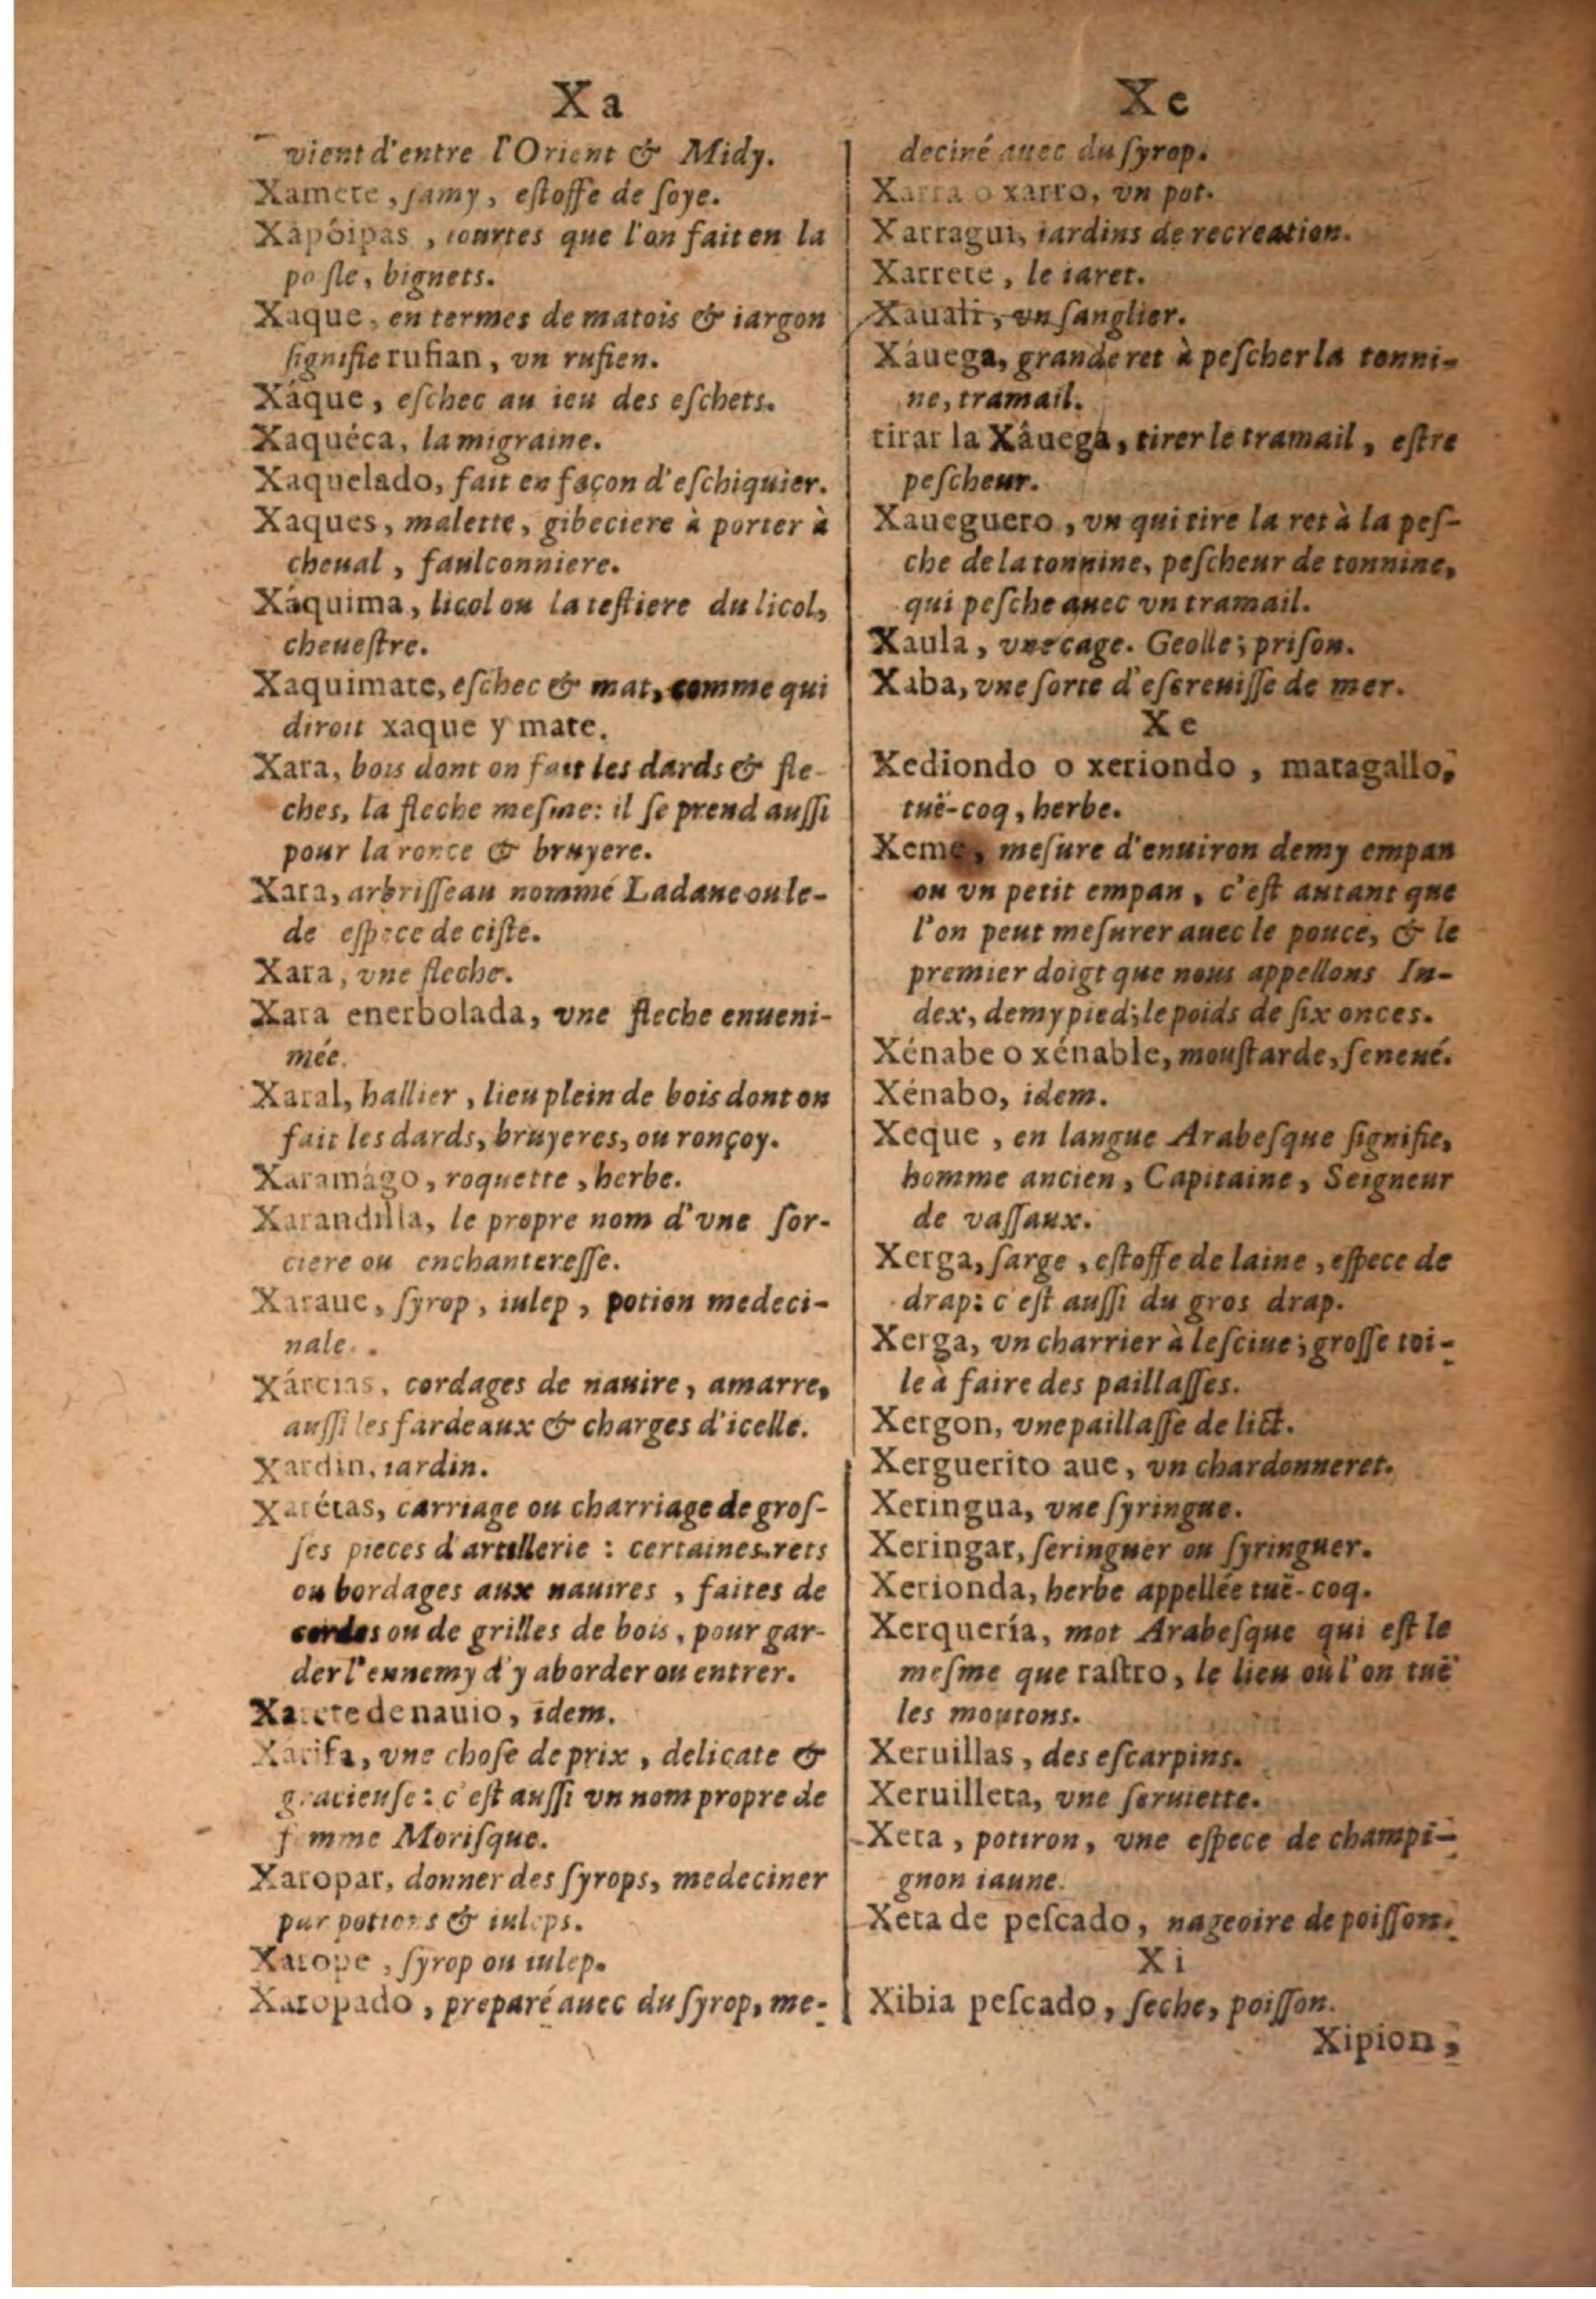 Xa
vient d'entre l'Orient & Midy.
Xamete, samy, estoffe de soye.
Xapóipas, tourtes que l'on fait en la
posle, bignets.
Xaque, en termes de matois & iargon
signifie rufian, vn rufien.
Xáque, eschec au ieu des eschets.
Xaquéca, la migraine.
Xaquelado, fait en façon d'eschiquier.
Xaques, malette, gibeciere à porter à
cheual, faulconniere.
Xáquima, licol ou la testiere du licol,
cheuestre.
Xaquimate, eschec & mat, comme qui
diroit xaque y mate.
Xara, bois dont on fait les dards & fle-
ches, la fleche mesme: il se prend aussi
pour la ronce & bruyere.
Xara, arbrisseau nommé Ladane ou le-
de espece de ciste.
Xara, vne fleche.
Xara enerbolada, vne fleche enueni-
mée.
Xaral, hallier, lieu plein de bois dont on
fait les dards, bruyeres, ou ronçoy.
Xaramágo, roquette, herbe.
Xarandilla, le propre nom d'vne sor-
ciere ou enchanteresse.
Xaraue, syrop, iulep, potion medeci-
nale.
Xárcias, cordages de nauire, amarre,
aussi les fardeaux & charges d'icelle.
Xardin, iardin.
Xarétas, carriage ou charriage de gros-
ses pieces d'artillerie : certaines rets
ou bordages aux nauires, faites de
cordes ou de grilles de bois, pour gar-
der l'ennemy d'y aborder ou entrer.
Xarete de nauio, idem.
Xarifa, vne chose de prix, delicate &
gracieuse: c'est aussi vn nom propre de
femme Morisque.
Xaropar, donner des syrops, medeciner
par potions & iuleps.
Xarope, syrop ou iulep.
Xaropado, preparé auec du syrop, me-
Xe
deciné auec du syrop.
Xarra o xarro, vn pot.
Xarragui, iardins de recreation.
Xarrete, le iaret.
Xauali, vn sanglier.
Xáuega, grande ret à pescher la tonni-
ne, tramail.
tirar la Xáuega, tirer le tramail, estre
pescheur.
Xaueguero, vn qui tire la ret à la pes-
che de la tonnine, pescheur de tonnine,
qui pesche auec vn tramail.
Xaula, vne cage. Geolle; prison.
Xaba, vne sorte d'escreuisse de mer.
Xe
Xediondo o xeriondo, matagallo,
tuë-coq, herbe.
Xeme, mesure d'enuiron demy empan
ou vn petit empan, c'est autant que
l'on peut mesurer auec le pouce, & le
premier doigt que nous appellons In-
dex, demy pied; le poids de six onces.
Xénabe o xénable, moustarde, seneué.
Xénabo, idem.
Xeque, en langue Arabesque signifie,
homme ancien, Capitaine, Seigneur
de vassaux.
Xerga, sarge, estoffe de laine, espece de
drap: c'est aussi du gros drap.
Xerga, vn charrier à lesciue; grosse toi-
le à faire des paillasses.
Xergon, vne paillasse de lict.
Xerguerito aue, vn chardonneret.
Xeringua, vne syringue.
Xeringar, seringuer ou syringuer.
Xerionda, herbe appellée tuë-coq.
Xerquería, mot Arabesque qui est le
mesme que rastro, le lieu où l'on tuë
les moutons.
Xeruillas, des escarpins.
Xeruilleta, vne seruiette.
Xeta, potiron, vne espece de champi-
gnon iaune.
Xeta de pescado, nageoire de poisson.
Xi
Xibia pescado, seche, poisson.
Xipion,